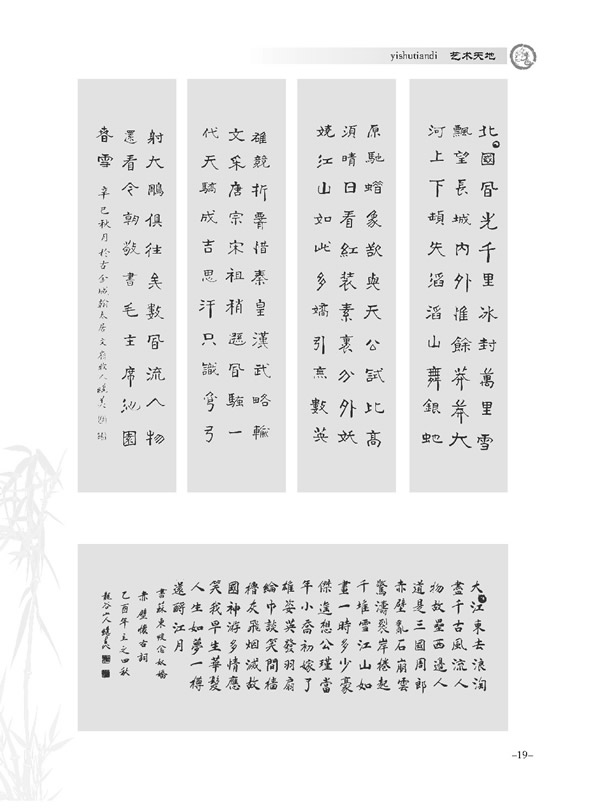 yishutiandi 艺术天地
北國風光千里冰封萬里雪
飄望長城内外惟餘莽莽大
河上下頓失滔滔山舞銀蛇
原馳蠟象欲與天公試比高
須晴日看紅裝素裹分外妖
嬈江山如此多嬌引無數英
雄競折腰惜秦皇漢武略輸
文采唐宗宋祖稍遜風騷一
代天驕成吉思汗只識彎弓
射大鵰俱往矣數風流人物
還看今朝敬書毛主席沁園
春雪 辛巳秋月於古金城
大江東去浪淘
盡千古風流人
物故壘西邊人
道是三國周郎
赤壁亂石崩雲
驚濤裂岸捲起
千堆雪江山如
畫一時多少豪
傑遙想公瑾當
年小喬初嫁了
雄姿英發羽扇
綸巾談笑間檣
櫓灰飛烟滅故
國神游多情應
笑我早生華髮
人生如夢一樽
還酹江月
書蘇東坡念奴嬌
赤壁懷古詞
乙酉年
山人
–19–